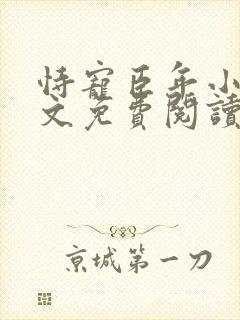 恃寵臣年小
文免費閱讀
京城第一刀